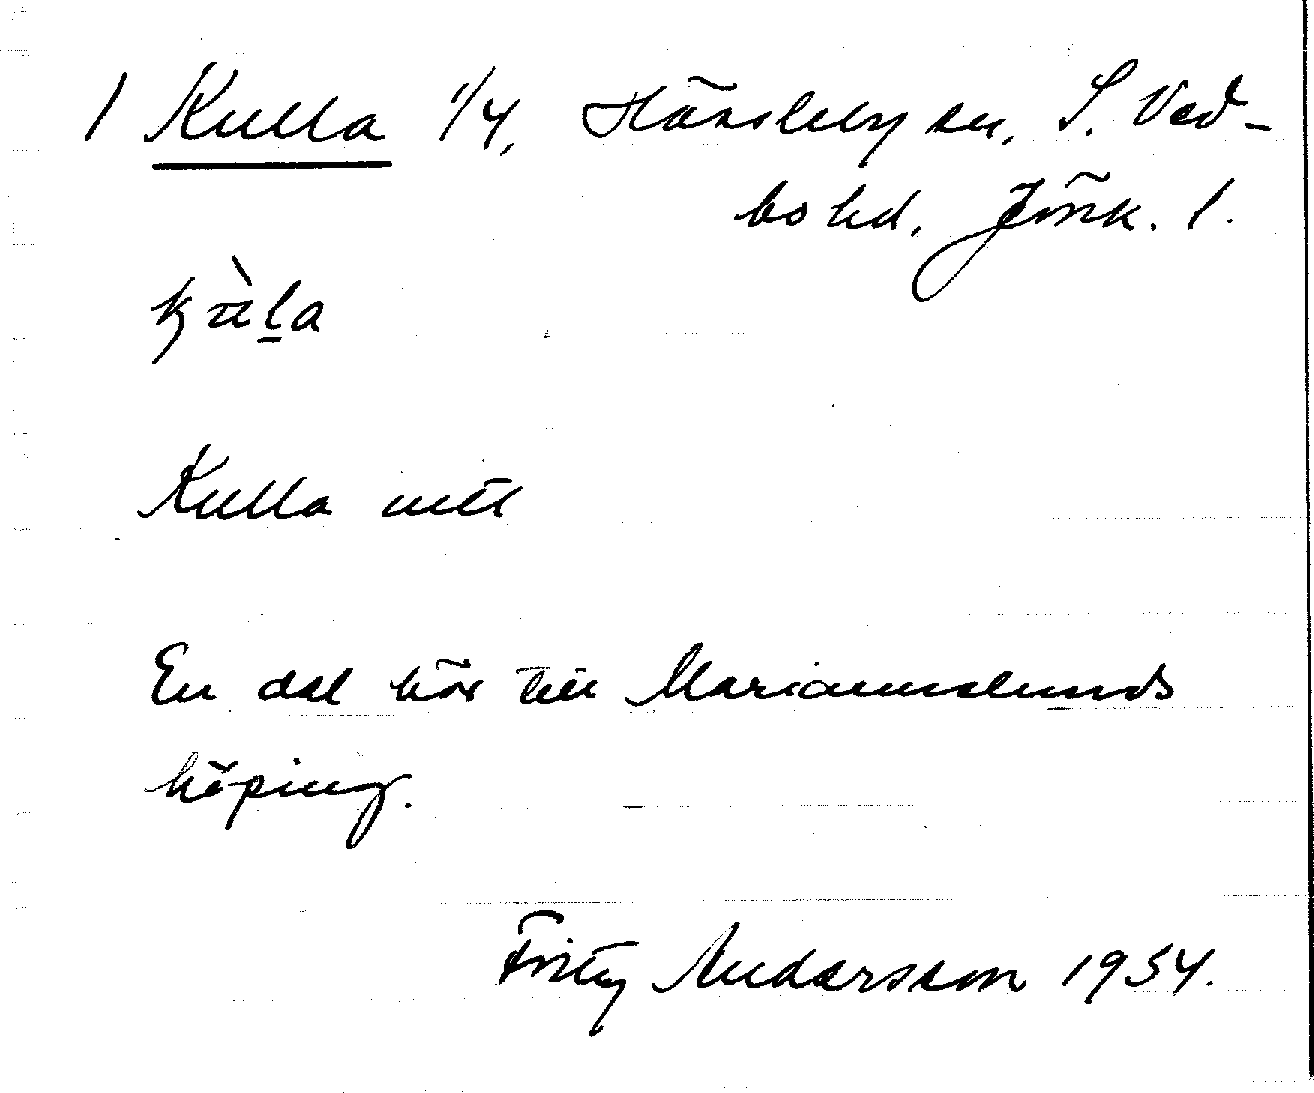 1 Kulla 1/4, Hässleby sn, S. Ved-
bo hd. Jönk. l.
Kulla mtl
En del hör till Mariannelunds
köping.
Fritz Andersson 1954.